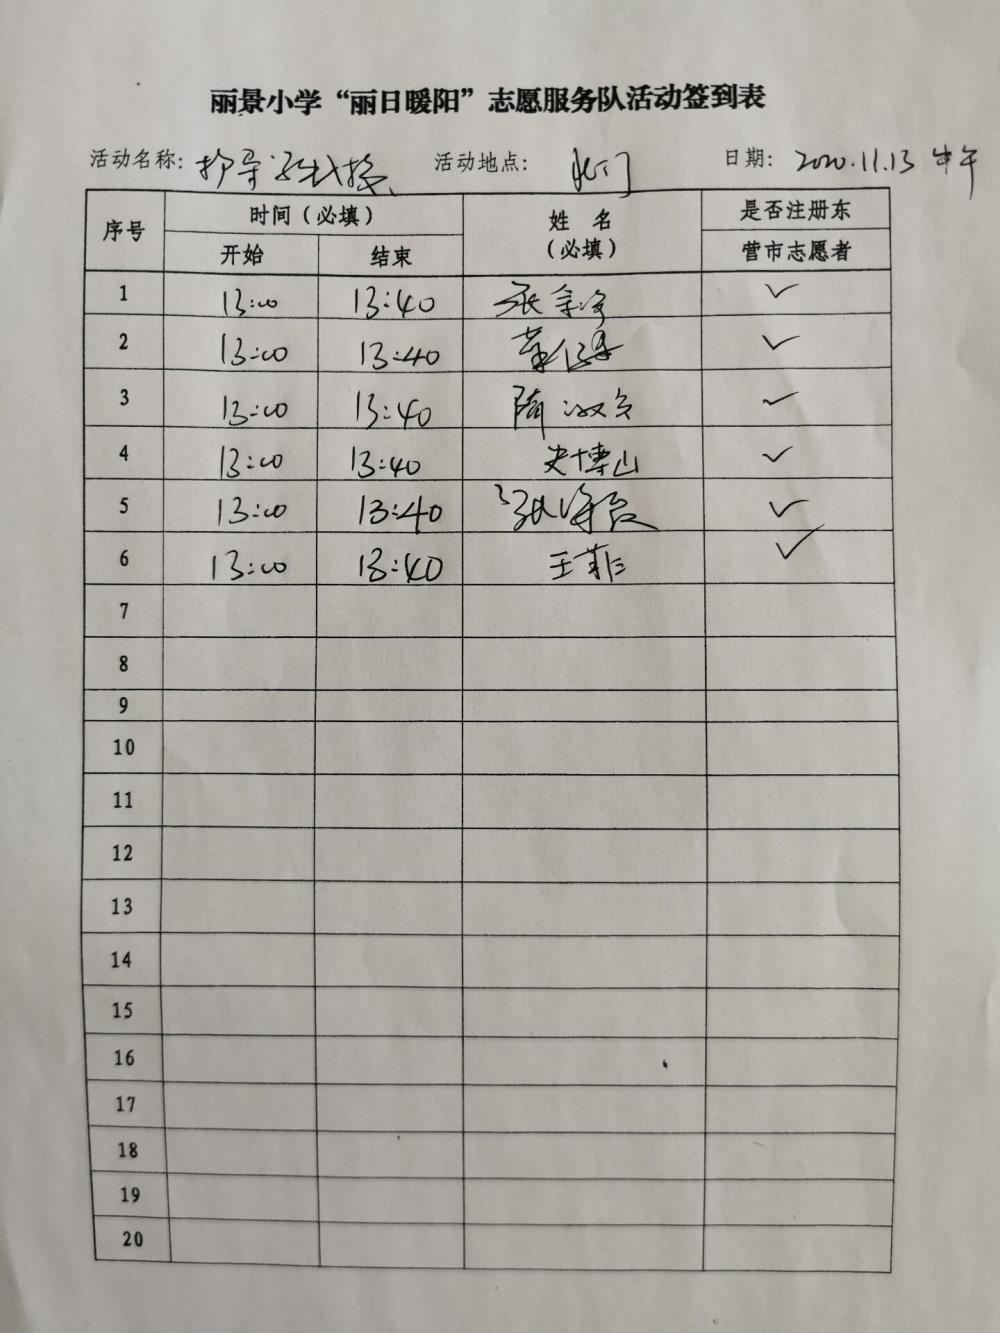 丽景小学“丽日暖阳”志愿服务队活动签到表
活动名称: 护导 活动地点: 北门 日期: 2020.11.13 中午
序号 时间（必填） 姓名（必填） 是否注册东营市志愿者
开始 结束
1 13:00 13:40 ✓
2 13:00 13:40 ✓
3 13:00 13:40 隋 ✓
4 13:00 13:40 史博山 ✓
5 13:00 13:40 ✓
6 13:00 13:40 王菲 ✓
7
8
9
10
11
12
13
14
15
16
17
18
19
20